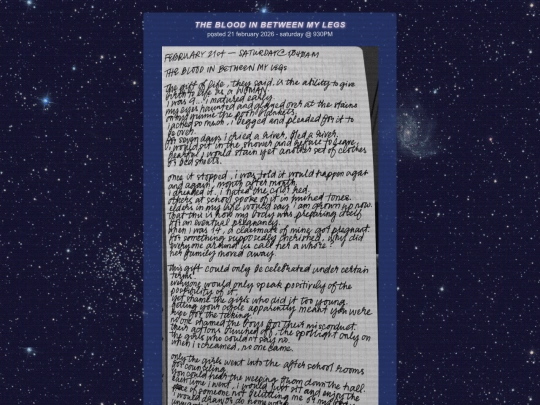 THE BLOOD IN BETWEEN MY LEGS
posted 21 february 2026 - saturday @ 930PM
FEBRUARY 21st — SATURDAY @ AM
THE BLOOD IN BETWEEN MY LEGS
the gift of life, they said, is the ability to give
birth to life as a WOMAN.
I was 9... i matured early.
my eyes haunted and at the stains
i so much, i begged and pleaded for it to
be over.
for seven days i cried a river, bled a river.
i would sit in the shower and
fearful i would stain yet another set of clothes
or bed sheets.
once it stopped, i was told it would happen again
and again, month after month.
i dreaded it. i hated the color red.
others at school spoke of it in hushed tones.
elders in my life would say i am grown up now.
that this is how my body was preparing itself
for an eventual pregnancy.
when i was 14, a classmate of mine got pregnant.
for something supposedly cherished, why did
everyone around us call her a whore?
her family moved away.
this gift could only be celebrated under certain
terms.
everyone would only speak positively of the
possibility of it.
yet shame the girls who did it too young.
getting your cycle apparently meant you were
ripe for the taking.
no one shamed the boys for their misconduct.
their actions brushed off, the spotlight only on
the girls who couldn't say no.
when i screamed, no one came.
only the girls went into the after school rooms
for counseling.
you could hear the weeping from down the hall.
each time i went, i would just sit and enjoy the
of someone not belittling me or my body.
i would draw or do homework